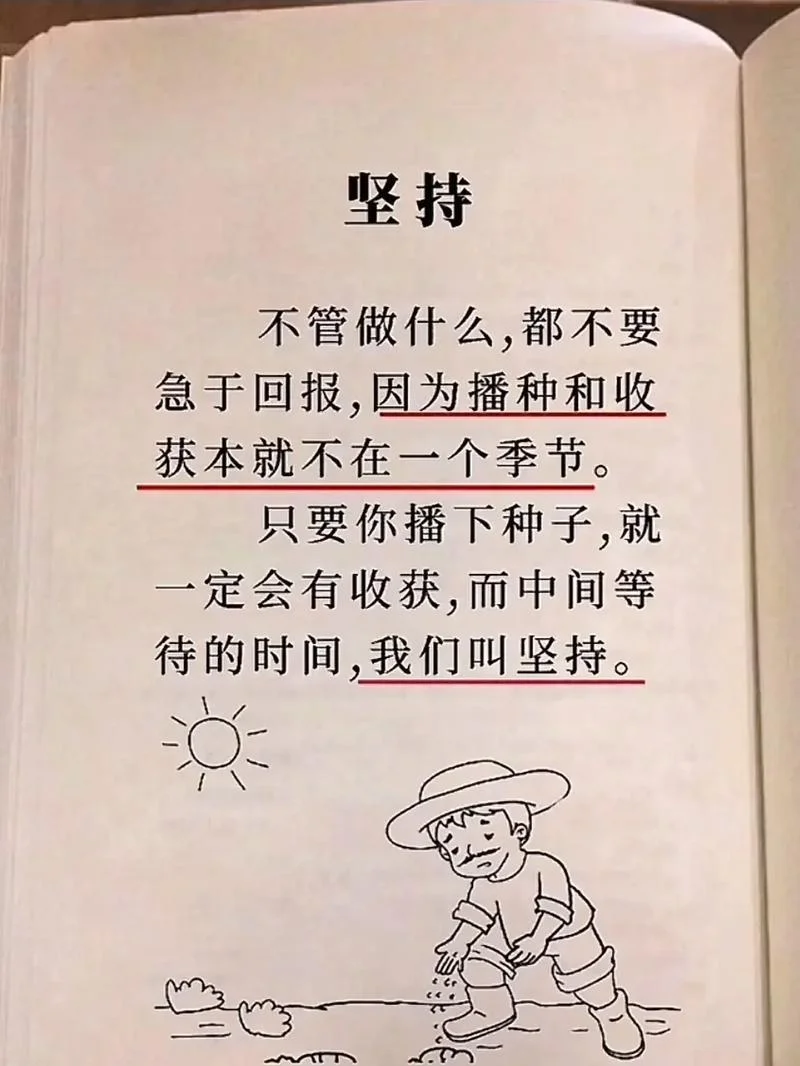 坚持
不管做什么,都不要
急于回报,因为播种和收
获本就不在一个季节。
只要你播下种子,就
一定会有收获,而中间等
待的时间,我们叫坚持。